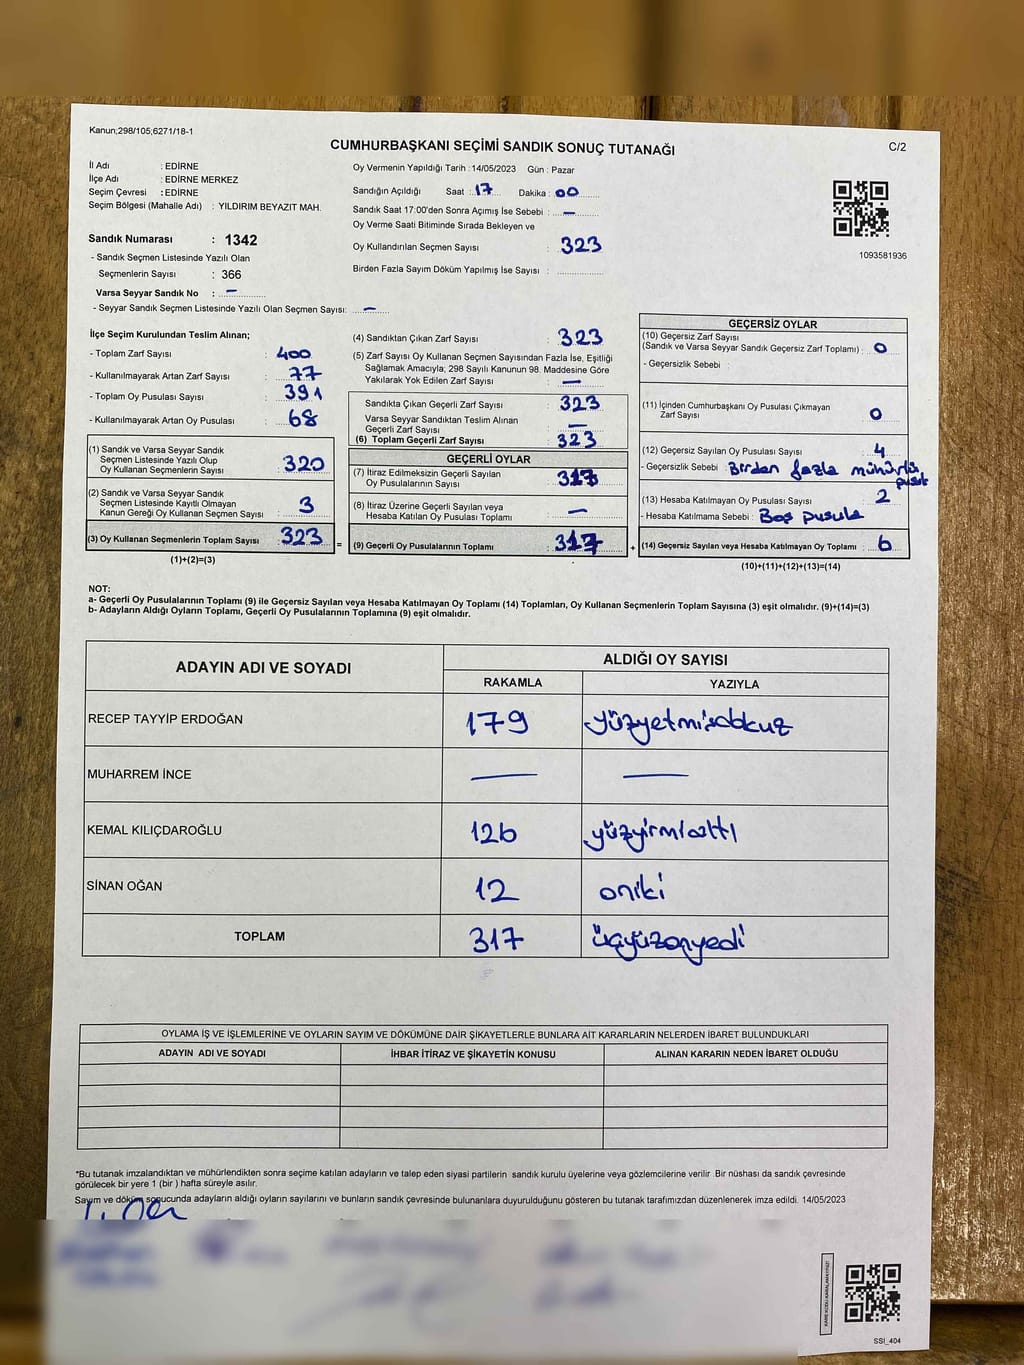 Kanun;298/105;6271/18-1
CUMHURBAŞKANI SEÇİMİ SANDIK SONUÇ TUTANAĞI
C/2
İl Adı : EDİRNE
İlçe Adı : EDİRNE MERKEZ
Seçim Çevresi : EDİRNE
Seçim Bölgesi (Mahalle Adı) : YILDIRIM BEYAZIT MAH.
Sandık Numarası : 1342
- Sandık Seçmen Listesinde Yazılı Olan
Seçmenlerin Sayısı : 366
Varsa Seyyar Sandık No : –
- Seyyar Sandık Seçmen Listesinde Yazılı Olan Seçmen Sayısı: –
Oy Vermenin Yapıldığı Tarih : 14/05/2023 Gün : Pazar
Sandığın Açıldığı Saat : 17 Dakika : 00
Sandık Saat 17:00'den Sonra Açımış İse Sebebi : –
Oy Verme Saati Bitiminde Sırada Bekleyen ve
Oy Kullandırılan Seçmen Sayısı : 323
Birden Fazla Sayım Döküm Yapılmış İse Sayısı :
1093581936
İlçe Seçim Kurulundan Teslim Alınan;
- Toplam Zarf Sayısı : 400
- Kullanılmayarak Artan Zarf Sayısı : 77
- Toplam Oy Pusulası Sayısı : 391
- Kullanılmayarak Artan Oy Pusulası : 68
(1) Sandık ve Varsa Seyyar Sandık
Seçmen Listesinde Yazılı Olup
Oy Kullanan Seçmenlerin Sayısı : 320
(2) Sandık ve Varsa Seyyar Sandık
Seçmen Listesinde Kayıtlı Olmayan
Kanun Gereği Oy Kullanan Seçmen Sayısı : 3
(3) Oy Kullanan Seçmenlerin Toplam Sayısı : 323 =
(1)+(2)=(3)
(4) Sandıktan Çıkan Zarf Sayısı : 323
(5) Zarf Sayısı Oy Kullanan Seçmen Sayısından Fazla İse, Eşitliği
Sağlamak Amacıyla; 298 Sayılı Kanunun 98. Maddesine Göre
Yakılarak Yok Edilen Zarf Sayısı : –
Sandıkta Çıkan Geçerli Zarf Sayısı : 323
Varsa Seyyar Sandıktan Teslim Alınan
Geçerli Zarf Sayısı : –
(6) Toplam Geçerli Zarf Sayısı : 323
GEÇERLİ OYLAR
(7) İtiraz Edilmeksizin Geçerli Sayılan
Oy Pusulalarının Sayısı : 317
(8) İtiraz Üzerine Geçerli Sayılan veya
Hesaba Katılan Oy Pusulası Toplamı : –
(9) Geçerli Oy Pusulalarının Toplamı : 317 +
GEÇERSİZ OYLAR
(10) Geçersiz Zarf Sayısı
(Sandık ve Varsa Seyyar Sandık Geçersiz Zarf Toplamı) : 0
- Geçersizlik Sebebi
(11) İçinden Cumhurbaşkanı Oy Pusulası Çıkmayan
Zarf Sayısı : 0
(12) Geçersiz Sayılan Oy Pusulası Sayısı : 4
- Geçersizlik Sebebi : Birden fazla mühürlü
pusula
(13) Hesaba Katılmayan Oy Pusulası Sayısı : 2
- Hesaba Katılmama Sebebi : Boş pusula
(14) Geçersiz Sayılan veya Hesaba Katılmayan Oy Toplamı : 6
(10)+(11)+(12)+(13)=(14)
NOT:
a- Geçerli Oy Pusulalarının Toplamı (9) ile Geçersiz Sayılan veya Hesaba Katılmayan Oy Toplamı (14) Toplamları, Oy Kullanan Seçmenlerin Toplam Sayısına (3) eşit olmalıdır. (9)+(14)=(3)
b- Adayların Aldığı Oyların Toplamı, Geçerli Oy Pusulalarının Toplamına (9) eşit olmalıdır.
ADAYIN ADI VE SOYADI ALDIĞI OY SAYISI
RAKAMLA YAZIYLA
RECEP TAYYİP ERDOĞAN 179 yüzyetmişdokuz
MUHARREM İNCE — —
KEMAL KILIÇDAROĞLU 126 yüzyirmialtı
SİNAN OĞAN 12 oniki
TOPLAM 317 üçyüzonyedi
OYLAMA İŞ VE İŞLEMLERİNE VE OYLARIN SAYIM VE DÖKÜMÜNE DAİR ŞİKAYETLERLE BUNLARA AİT KARARLARIN NELERDEN İBARET BULUNDUKLARI
ADAYIN ADI VE SOYADI İHBAR İTİRAZ VE ŞİKAYETİN KONUSU ALINAN KARARIN NEDEN İBARET OLDUĞU
*Bu tutanak imzalandıktan ve mühürlendikten sonra seçime katılan adayların ve talep eden siyasi partilerin sandık kurulu üyelerine veya gözlemcilerine verilir .Bir nüshası da sandık çevresinde
görülecek bir yere 1 (bir ) hafta süreyle asılır.
Sayım ve döküm sonucunda adayların aldığı oyların sayılarını ve bunların sandık çevresinde bulunanlara duyurulduğunu gösteren bu tutanak tarafımızdan düzenlenerek imza edildi. 14/05/2023
SSİ_404